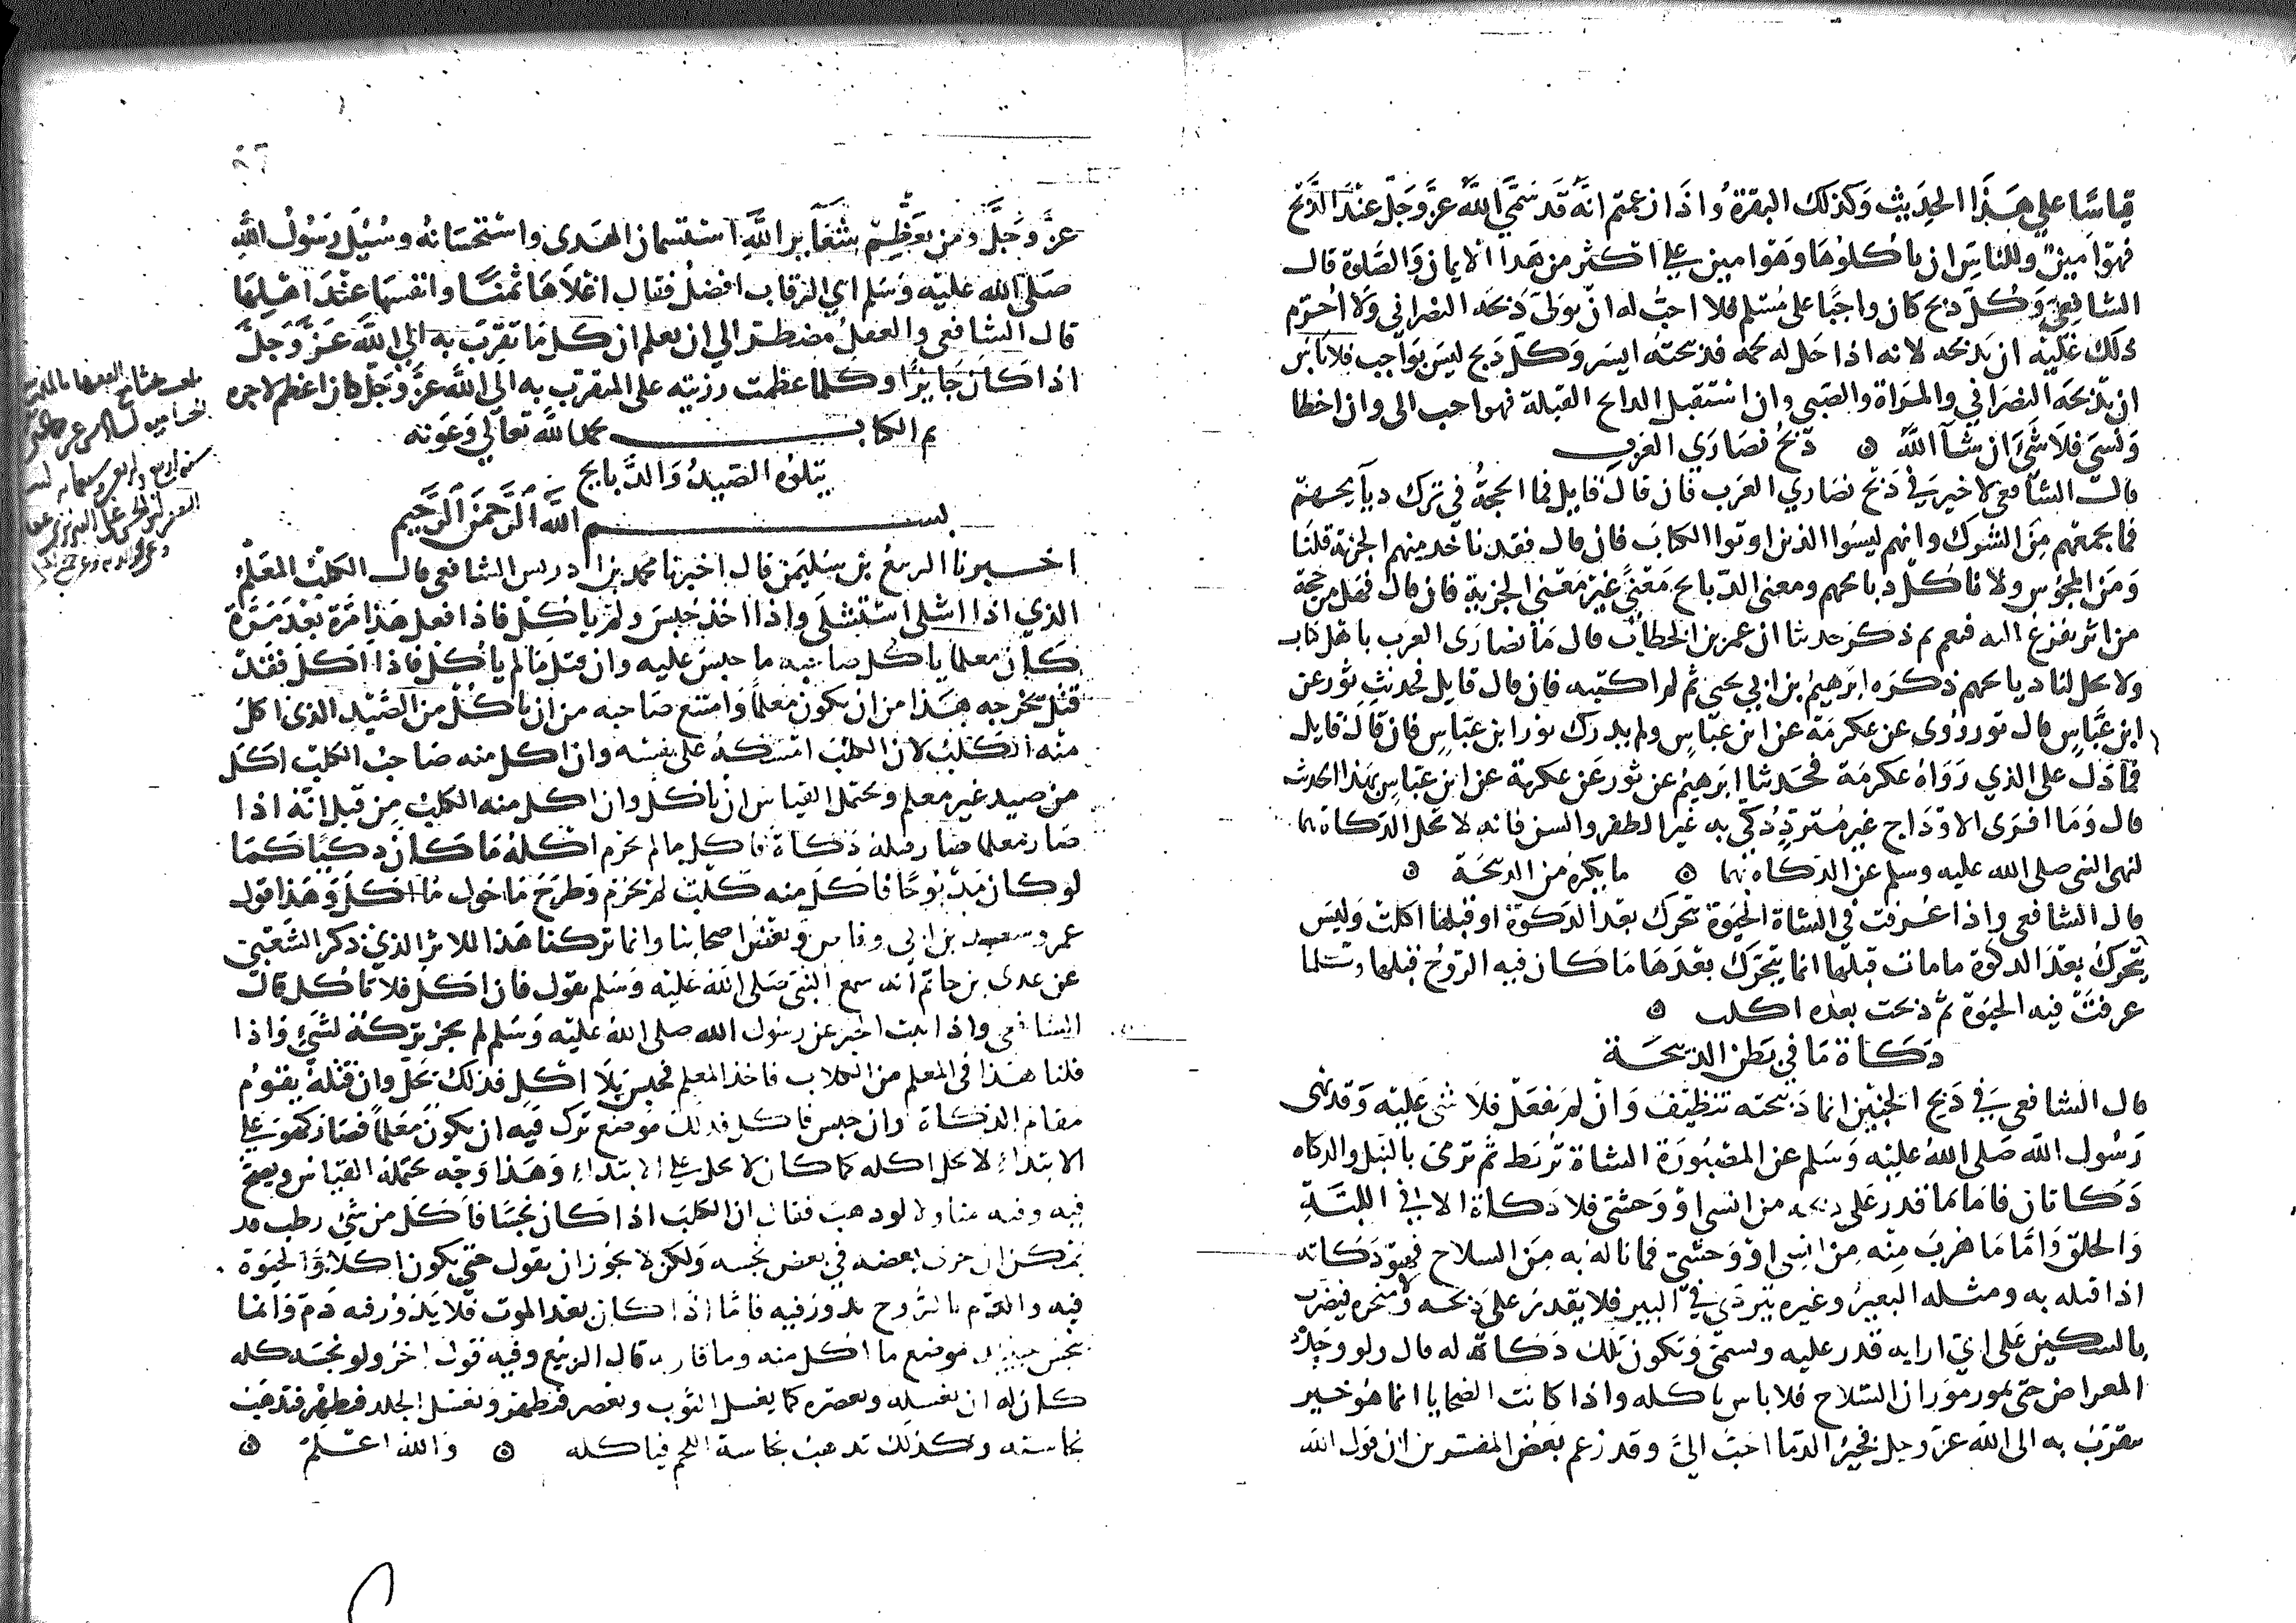 قياسا على هذا الحديث وكذلك البقرة واذا زعمتم انه قد سمى الله عز وجل عند الذبح
فهوا مين وللناس ان ياكلوها وهوا مين على اكثر من هذا الايمان والصلوة قال
الشافعي وكل ذبح كان واجبا على مسلم فلا احب له ان يولى ذبحه النصراني ولا احرم
ذلك عليه ان يذبحه لانه اذا حل له لحمه فذبيحته ايسر وكل ذبح ليس بواجب فلا باس
ان يذبحه النصراني والمراة والصبي وان استقبل الذابح القبلة فهو احب الى وان اخطا
ونسى فلا شى ان شا الله ذبح نصارى العرب
قال الشافعي لا خير في ذبح نصارى العرب فان قال قايل فما الحجة في ترك ذبايحهم
فما يجمعهم من الشرك وانهم ليسوا الذين اوتوا الكتاب فان قال فقد ناخذ منهم الجزية قلنا
ومن المجوس ولا ناكل ذبايحهم ومعنى الذبايح معنى غير معنى الجزية فان قال فهل من حجة
من اثر يفزع اليه فنعم ثم ذكر حديثا ان عمر بن الخطاب قال ما نصارى العرب باهل كتاب
ولا تحل لنا ذبايحهم ذكره ابرهيم بن ابي يحيى ثم لم اكتبه فان قال قايل فحديث ثور عن
ابن عباس قال ثور روى عن عكرمة عن ابن عباس ولم يدرك ثور ابن عباس فان قال قايل
فما دل على الذي رواه عكرمة فحدثنا ابرهيم عن ثور عن عكرمة عن ابن عباس بهذا الحديث
قال وما افرى الاوداج غير مترد ذكى به غير الظفر والسن فانه لا تحل الذكاة بهما
لنهى النبى صلى الله عليه وسلم عن الذكاه بهما ما يكره من الذبيحة
قال الشافعي واذا عرفت في الشاة الحيوة تحرك بعد الذكوة او قبلها اكلت وليس
يتحرك بعد الذكوة ما مات قبلها انما يتحرك بعدها ما كان فيه الروح قبلها وكلما
عرفت فيه الحيوة ثم ذبحت بعده اكلت
ذكاة ما في بطن الذبيحة
قال الشافعي في ذبح الجنين انما ذبيحته تنظيف وان لم يفعل فلا شى عليه وقد نهى
رسول الله صلى الله عليه وسلم عن المصبورة الشاة تربط ثم ترمى بالنبل والذكاه
ذكاتان فاما ما قدر على ذبحه من انسى او وحشى فلا ذكاة الا في اللبة
والحلق واما ما هرب منه من انسى او وحشى فما ناله به من السلاح فهو ذكاته
اذا قتله به ومثله البعير وغيره يتردى في البير فلا يقدر على ذبحه ولا منحره فيضرب
بالسكين على اى ارابه قدر عليه ويسمى وتكون تلك ذكاة له قال ولو وجد
المعراض حتى يمور مور ان السلاح فلا باس باكله واذا كانت الضحايا انما هو خير
يتقرب به الى الله عز وجل فخير الدما احب الى وقد زعم بعض المفسرين ان قول الله
عز وجل ومن يعظم شعاير الله استسمان الهدى واستحسانه وسيل رسول الله
صلى الله عليه وسلم اى الرقاب افضل فقال اغلاها ثمنا وانفسها عند اهلها
قال الشافعي والعقل مضطر الى ان يعلم ان كل ما تقرب به الى الله عز وجل
اذا كان جايزا وكلما عظمت رزيته على المتقرب به الى الله عز وجل كان اعظم لاجره
تم الكتاب بحمد الله تعالى وعونه
يتلوه الصيد والذبايح
بسم الله الرحمن الرحيم
اخبرنا الربيع بن سليمن قال اخبرنا محمد بن ادريس الشافعي قال الكلب المعلم
الذي اذا اشلى استشلى واذا اخذ حبس ولم ياكل فاذا فعل هذا مرة بعد مرة
كان معلما ياكل صاحبه ما حبس عليه وان قتل ما لم ياكل فاذا اكل فقد
قيل يخرجه هذا من ان يكون معلما وامتنع صاحبه من ان ياكل من الصيد الذى اكل
منه الكلب لان الكلب امسكه على نفسه وان اكل منه صاحب الكلب اكل
من صيد غير معلم ويحتمل القياس ان ياكل وان اكل منه الكلب من قبل انه اذا
صار معلما صار قتله ذكاة فاكل ما لم يحرم اكله ما كان ذكيا كما
لو كان مذبوحا فاكل منه كلب لم يحرم وطرح ما حول ما اكل وهذا قول
عمر وسعد بن ابى وقاص وبعض اصحابنا وانما تركنا هذا للاثر الذي ذكر الشعبى
عن عدى بن حاتم انه سمع النبى صلى الله عليه وسلم يقول فان اكل فلا تاكل قال
الشافعي واذا ثبت الخبر عن رسول الله صلى الله عليه وسلم لم يجز تركه لشى واذا
قلنا هذا في المعلم من الكلاب فاخذ المعلم فحبس بلا اكل فذلك يحل وان قتله يقوم
مقام الذكاة وان حبس فاكل فذلك موضع ترك فيه ان يكون معلما فصار كهو على
الابتداء لا يحل اكله كما كان لا يحل على الابتداء وهذا وجه يحتمله القياس ويصح
فيه وفيه متاول لو ذهب فقال ان الكلب اذا كان نجسا فاكل من شى رطب قد
يمكن ان جرى بعضه في بعض نجسه ولكن لا يجوز ان يقول حتى يكون اكلا والحيوة
فيه والدم بالروح يدور فيه فاما اذا كان بعد الموت فلا يدور فيه دم وانما
ينجس حينيذ موضع ما اكل منه وما قاربه قال الربيع وفيه قول اخر ولو نجسه كله
كان له ان يغسله ويعصره كما يغسل الثوب ويعصر فيطهر ويغسل الجلد فيطهر فتذهب
نجاسته وكذلك تذهب نجاسة اللحم فياكله والله اعلم